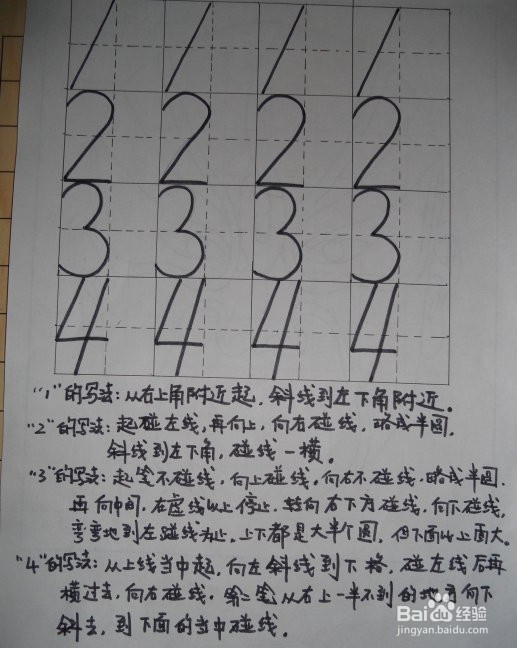 1 1 1 1
2 2 2 2
3 3 3 3
4 4 4 4
“1”的写法:从右上角附近起,斜线到左下角附近。
“2”的写法:起碰左线,再向上,向右碰线,略成半圆,
斜线到左下角,碰线一横。
“3”的写法:起笔不碰线,向上碰线,向右不碰线,略成半圆.
再向中间,在虚线以上停止,转向右下方碰线,向下碰线,
弯弯地到左碰线为止,上下都是大半个圆,但下面比上面大。
“4”的写法:从上线当中起,向左斜线到下格,碰左线后再
横过去,向右碰线,第二笔从右上一半不到的地方向下
斜去,到下面的当中碰线。
Baidu经验
jingyan.baidu.com